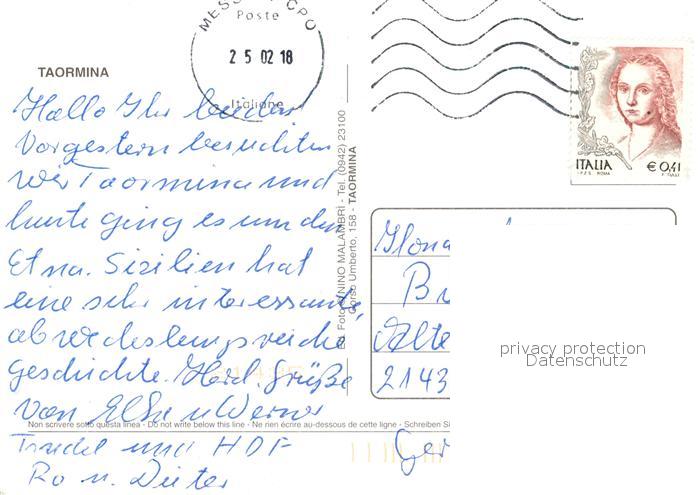 MESSINA CPO
Poste
2 5 02 18
Italiane
TAORMINA
Hallo Ihr beiden
Vorgestern besuchten
wir Taormina und
heute ging es um den
Etna. Sizilien hat
eine sehr interessante,
abwechslungsreiche
Geschichte. Herzl. Grüße
von Elke u Werner
Non scrivere sotto questa linea - Do not write below this line - Ne rien écrire au-dessous de cette ligne - Schreiben Si
Traudel und HDF
Ro u. Dieter
Foto NINO MALAMBRÌ - Tel. (0942) 23100
Corso Umberto, 158 - TAORMINA
ITALIA
€ 0,41
I.P.Z.S. ROMA
Ilona
Br
Alte
2143
Ger
privacy protection
Datenschutz